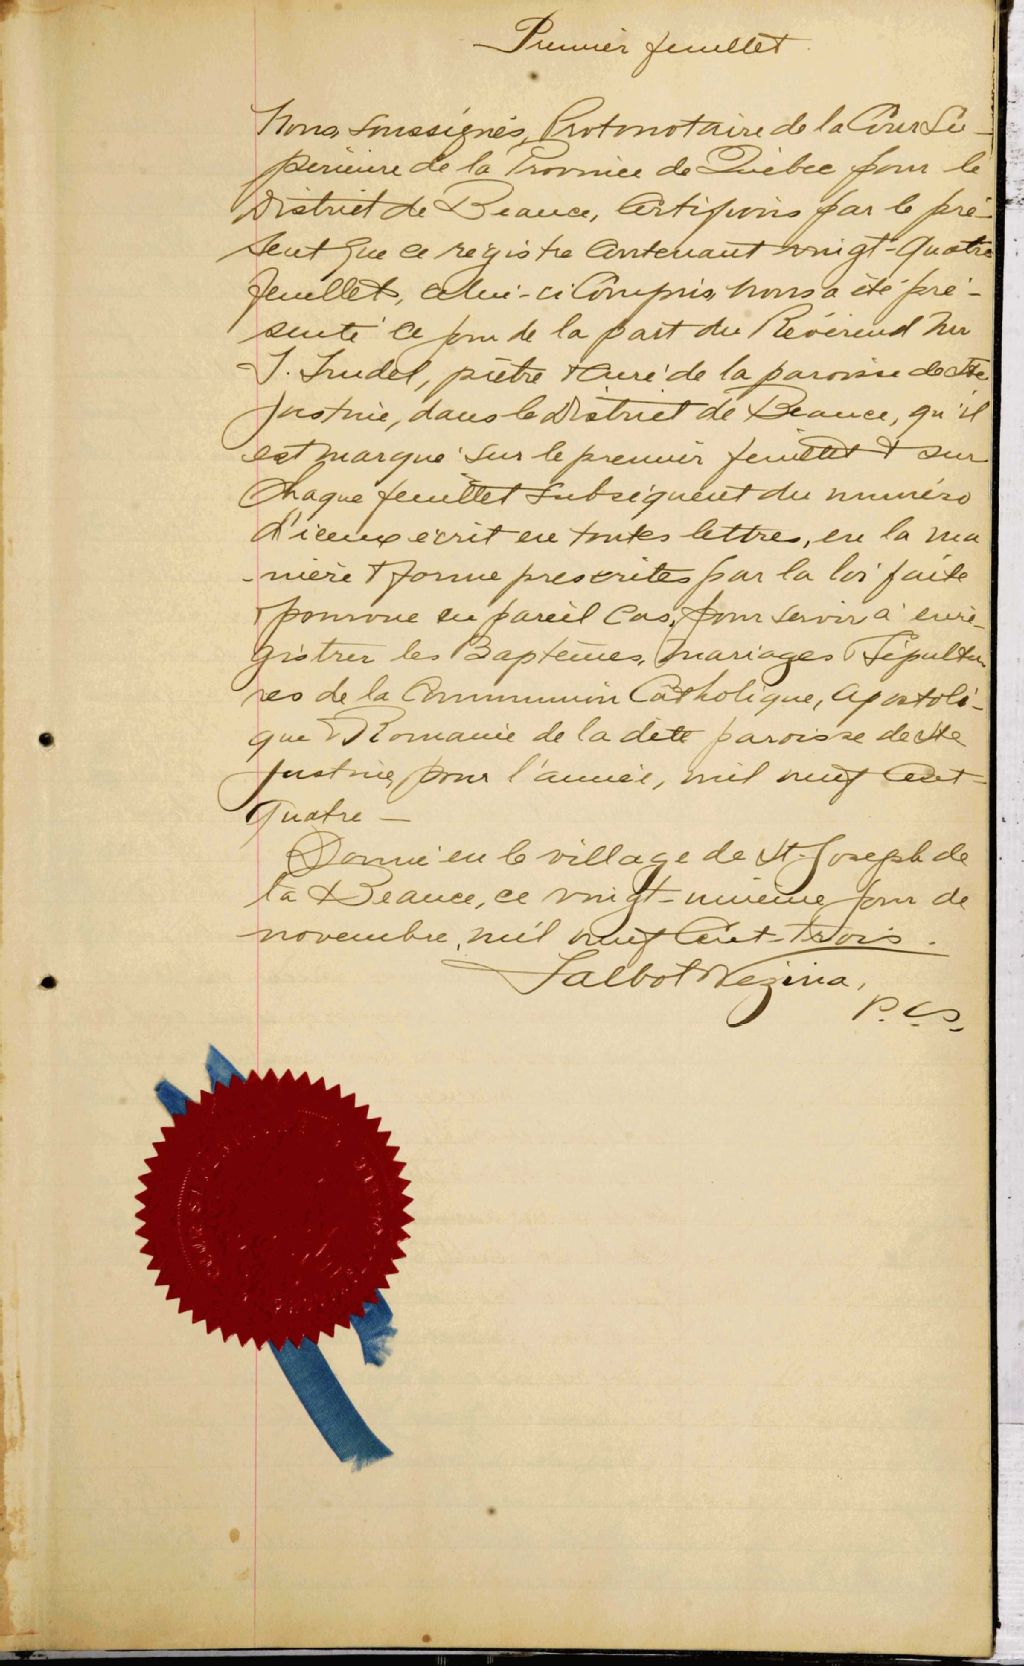 Premier feuillet
Nous, soussignés, Protonotaire de la Cour Su-
périeure de la Province de Québec pour le
District de Beauce, Certifions par le pré-
sent que ce régistre contenant vingt-quatre
feuillets, celui-ci Compris, nous a été pré-
senté ce jour de la part du Révérend Mr
J. Trudel, prêtre & curé de la paroisse de Ste
Justine, dans le District de Beauce, qu'il
est marqué sur le premier feuillet & sur
Chaque feuillet Subséquent du numéro
d'iceux écrit en toutes lettres, en la ma
-nière & forme prescrites par la loi faite
& pourvue en pareil Cas, pour servir à enré-
gistrer les Baptêmes, mariages & Sépultu
res de la Communion Catholique, Apostoli-
que & Romaine de la dite paroisse de Ste
Justine, pour l'année, mil neuf Cent-
Quatre —
Donné en le village de St-Joseph de
la Beauce, ce vingt-unième jour de
novembre, mil neuf Cent-Trois.
Talbot Vézina,
P.C.S.